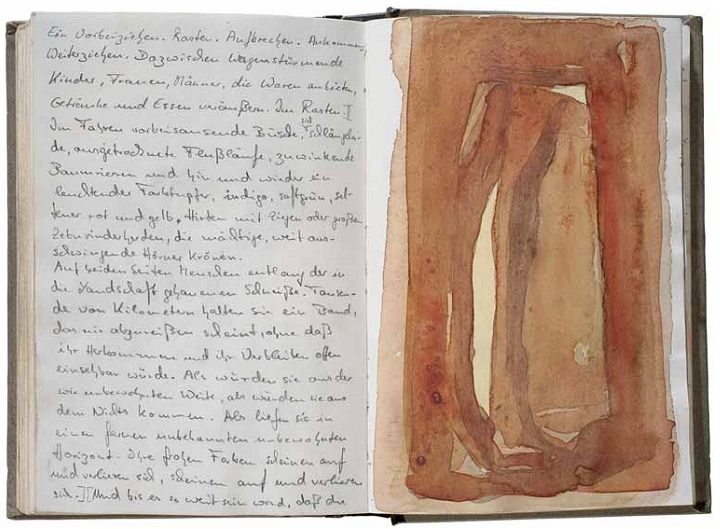 Ein Vorbeiziehen. Rasten. Aufbrechen. Ankommen,
Weiterziehen. Dazwischen wagenstürmende
Kinder, Frauen, Männer, die Waren anbieten,
Getränke und Essen veräußern. Im Rasten.]
Im Fahren vorbeisausende Büsche, sich schlängeln-
de, ausgetrocknete Flußläufe, zuwinkende
Baumriesen und hin und wieder ein
leuchtender Farbtupfer, indigo, saftgrün, sel-
tener rot und gelb. Hirten mit Ziegen oder großen
Zeburinderherden, die mächtige, weit aus-
schwingende Hörner krönen.
Auf beiden Seiten Menschen entlang der in
die Landschaft gehauenen Schneise. Tausen-
de von Kilometern halten sie ein Band,
das nie abzureißen scheint, ohne daß
ihr Herkommen und ihr Verbleiben offen
einsehbar würde. Als würden sie aus der
wie unbewohnten Weite, als würden sie aus
dem Nichts kommen. Als liefen sie in
einen fernen unbekannten unbewohnten
Horizont. Ihre frohen Farben scheinen auf
und verlieren sich, scheinen auf und verlieren
sich.][Und bis es so weit sein wird, daß die